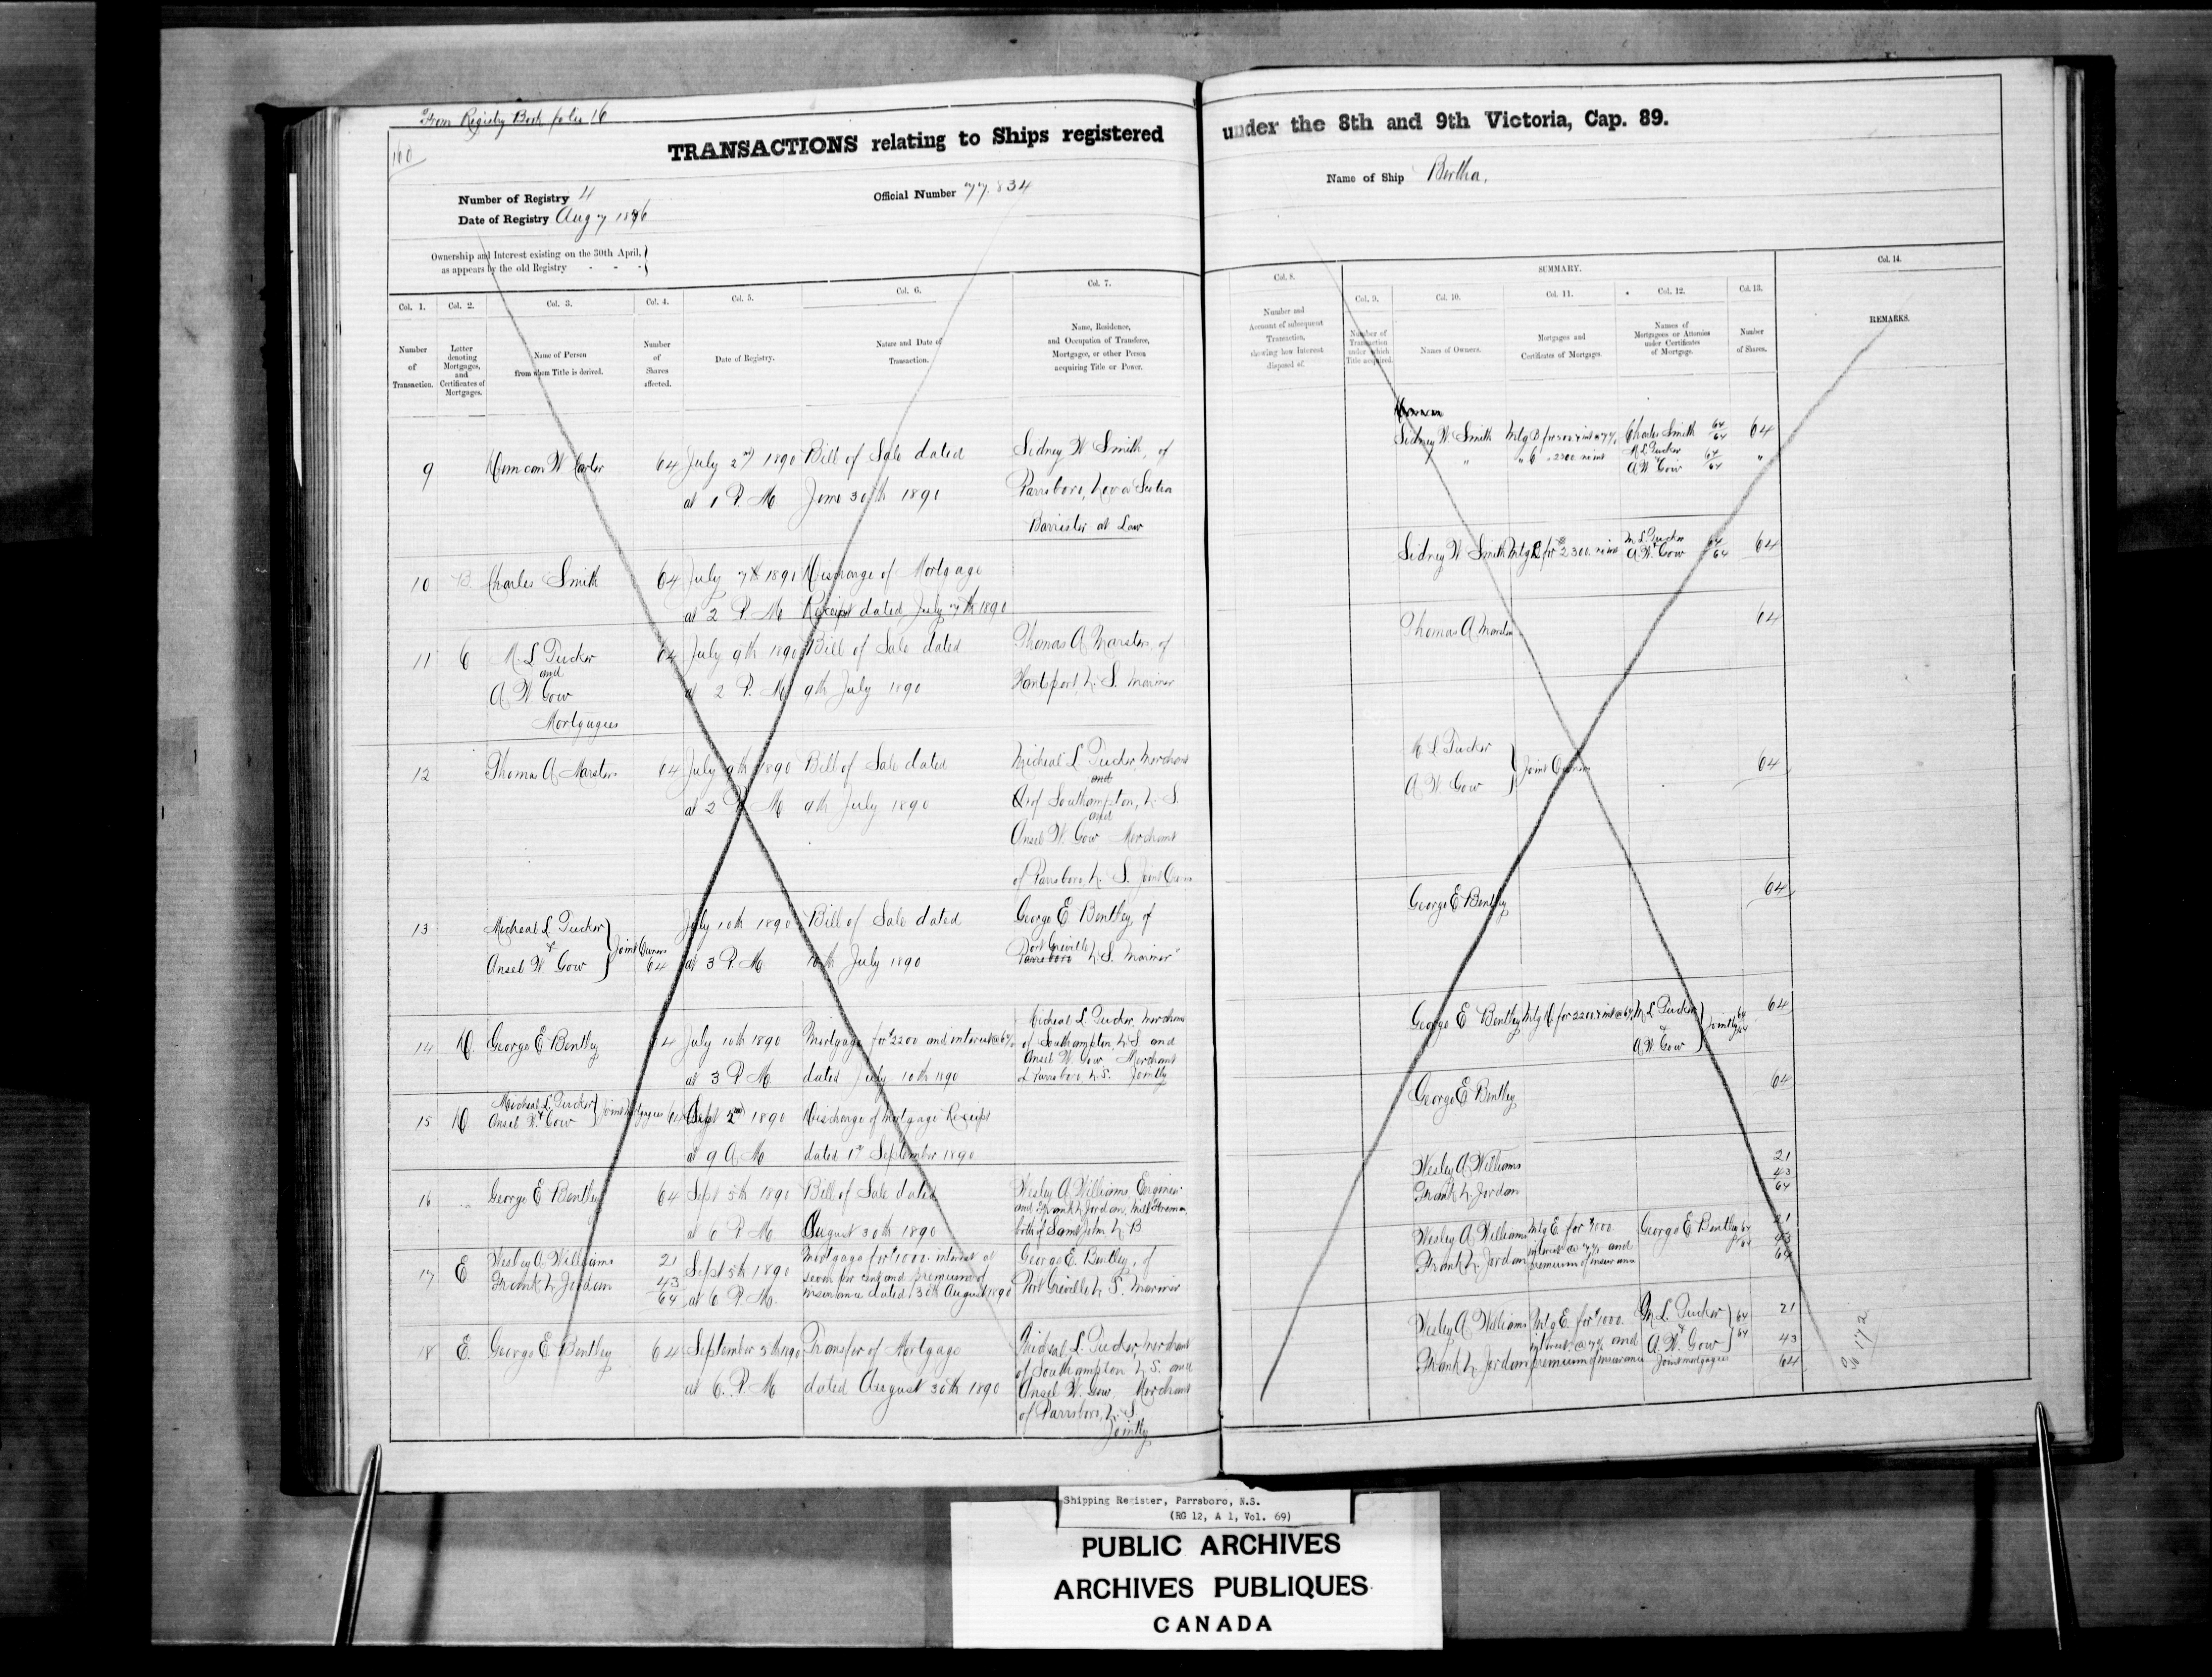 From Registry Book folio 16
160
TRANSACTIONS relating to Ships registered under the 8th and 9th Victoria, Cap. 89.
Number of Registry 4
Official Number 77.834
Name of Ship Bertha.
Date of Registry Aug 7 1876
Ownership and Interest existing on the 30th April,
as appears by the old Registry - - -
SUMMARY.
Col. 1.
Col. 2.
Col. 3.
Col. 4.
Col. 5.
Col. 6.
Col. 7.
Col. 8.
Col. 9.
Col. 10.
Col. 11.
Col. 12.
Col. 13.
Col. 14.
Number
of
Transaction.
Letter
denoting
Mortgages,
and
Certificates of
Mortgages.
Name of Person
from whom Title is derived.
Number
of
Shares
affected.
Date of Registry.
Nature and Date of
Transaction.
Name, Residence,
and Occupation of Transferee,
Mortgagee, or other Person
acquiring Title or Power.
Number and
Account of subsequent
Transaction,
showing how Interest
disposed of.
Number of
Transaction
under which
Title acquired.
Names of Owners.
Mortgages and
Certificates of Mortgages.
Names of
Mortgagees or Attornies
under Certificates
of Mortgage.
Number
of Shares.
REMARKS.
9
Duncan W Carter
64
July 2nd 1890
at 1 P. M
Bill of Sale dated
June 30th 1890
Sidney W Smith, of
Parrsboro, Nova Scotia
Barrister at Law
Sidney W Smith
Charles Smith 64/64
M L Tucker
&
A W Gow 64/64
64
"
10
B
Charles Smith
64
July 7th 1890
at 2 P. M
Discharge of Mortgage
Receipt dated July 7th 1890
Sidney W Smith
M L Tucker
&
A W Gow 64/64
64
11
C
M. L Tucker
and
A W Gow
Mortgagees
64
July 9th 1890
at 2 P. M
Bill of Sale dated
9th July 1890
Thomas A Marsters, of
Hantsport, N. S. Mariner
Thomas A Marsters
64
12
Thomas A Marsters
64
July 9th 1890
at 2 P M
Bill of Sale dated
9th July 1890
Micheal L Tucker, Merchant
of Southampton, N. S.
and
Ansel W. Gow Merchant
of Parrsboro, N. S. Joint Owners
M L Tucker
A W Gow
Joint Owners
64
13
Micheal L Tucker
&
Ansel W. Gow
Joint Owners
64
July 10th 1890
at 3 P. M
Bill of Sale dated
10th July 1890
George E Bentley, of
Port Greville
Parrsboro N. S. Mariner
George E Bentley
64
14
D
George E Bentley
64
July 10th 1890
at 3 P M
Mortgage for $2200 and interest @ 6%
dated July 10th 1890
Micheal L Tucker, Merchant
of Southampton, N. S and
Ansel W. Gow Merchant
of Parrsboro, N. S. Jointly
George E Bentley
Mtg D for 2200 & int @ 6%
M L Tucker
&
A W Gow
Jointly 64/64
64
15
D
Micheal L Tucker
&
Ansel W. Gow
Joint Mortgagees 64
Sept 2nd 1890
at 9 A M
Discharge of Mortgage Receipt
dated 1st September 1890
George E Bentley
64
16
George E Bentley
64
Sept 5th 1890
at 6 P M
Bill of Sale dated
August 30th 1890
Wesley A Williams, Engineer
and Frank N Jordan, Mill Foreman
both of Saint John N B
Wesley A Williams
Frank N. Jordan
21
43
64
17
E
Wesley A. Williams
Frank N Jordan
21
43
64
Sept 5th 1890
at 6 P. M.
Mortgage for $1000. interest at
seven per cent and premium of
insurance dated 30th August 1890
George E. Bentley, of
Port Greville N. S. Mariner
Wesley A Williams
Frank N. Jordan
Mtg E. for $1000
interest @ 7% and
premium of insurance
George E Bentley 64/64
21
43
64
18
E.
George E. Bentley
64
September 5th 1890
at 6. P. M
Transfer of Mortgage
dated August 30th 1890
Micheal L. Tucker, Merchant
of Southampton N. S. and
Ansel W. Gow, Merchant
of Parrsboro, N. S.
Jointly
Wesley A Williams
Frank N. Jordan
Mtg E. for $1000.
interest @ 7% and
premium of insurance
M L. Tucker
&
A. W. Gow
Joint mortgagees
64/64
21
43
64
172
Shipping Register, Parrsboro, N.S.
(RG 12, A 1, Vol. 69)
PUBLIC ARCHIVES
ARCHIVES PUBLIQUES
CANADA